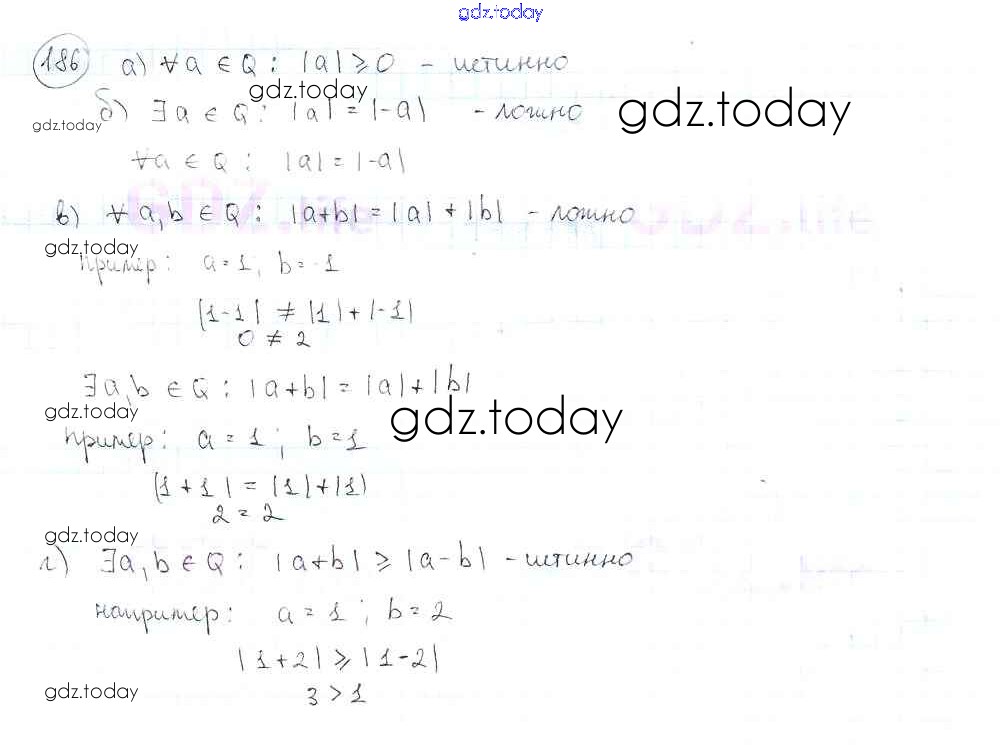 gdz.today
186 а) ∀a ∈ Q : |a| ⩾ 0 - истинно
gdz.today
б) ∃a ∈ Q : |a| = |-a| - ложно
gdz.today
gdz.today
∀a ∈ Q : |a| = |-a|
в) ∀a,b ∈ Q : |a+b| = |a| + |b| - ложно
gdz.today
пример: a = 1; b = -1
|1-1| ≠ |1| + |-1|
0 ≠ 2
∃a,b ∈ Q : |a+b| = |a| + |b|
gdz.today
gdz.today
пример: a = 1 ; b = 1
|1 + 1| = |1| + |1|
2 = 2
gdz.today
г) ∃a,b ∈ Q : |a+b| ⩾ |a-b| - истинно
например: a = 1 ; b = 2
|1+2| ⩾ |1-2|
gdz.today
3 > 1